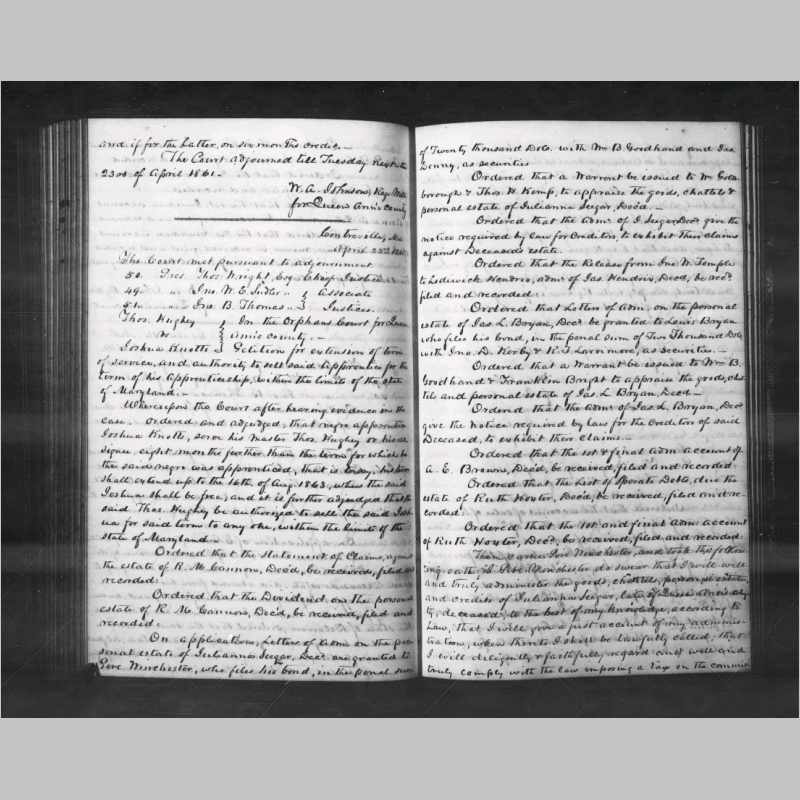 and if for the Latter, on six months credit.-
The Court adjourned till Tuesday Next the
23rd of April 1861.-
W. A. Johnson, Reg. Wills
for Queen Ann's County
Centreville, Md
April 23rd 1861
The Court met pursuant to adjournment
50. Pres. Thos. Wright, Esq. Chief Justice
49. " Jno. W. E. Sudler " } Associate
51. " Jno. B. Thomas " } Justices.
Thos. Hughey } In the Orphans Court for Queen
vs. } Ann's County.-
Joshua Knotts } Petition for extension of term
of service, and authority to sell said apprentice for the
term of his apprenticeship, within the limits of the State
of Maryland.-
Whereupon the Court after hearing evidence in the
case. ordered and adjudged, that negro apprentice
Joshua Knotts, serve his Master Thos. Hughey or his as-
signee, eight months further than the term for which he
the said negro was apprenticed, that is to say: his term
shall extend up to the 16th of Aug. 1863, when the said
Joshua shall be free, and it is further adjudged that the
said Thos. Hughey be authorized to sell the said Josh-
ua for said term to any one, within the limits of the
State of Maryland.-
Ordered that the Statement of Claims, against
the estate of R. M. Cannon, Dec'd, be received, filed and
recorded.
Ordered that the Dividend on the personal
estate of R. M. Cannon, Dec'd, be received, filed and
recorded.-
On application, Letters of Adm. on the per-
sonal estate of Julianna Seegar, Decd. are granted to
Pere Winchester, who files his bond, in the penal sum
of Twenty thousand Dols. with Wm B. Goodhand and Jas.
Denny, as securities
Ordered that a Warrant be issued to Wm Golds-
borough & Thos. H. Kemp, to appraise the goods, chattels &
personal estate of Julianna Seegar, Dec'd.-
Ordered that the Adm. of J. Seegar, Decd give the
notice required by law for Creditors, to exhibit their claims
against Deceased's estate.
Ordered that the Release from Jno. W. Temple
to Ledewick Hendrix, adm. of Jas. Hendrix, Decd, be recd.
filed and recorded.
Ordered that Letters of Adm. on the personal
estate of Jas. L. Bryan, Decd be granted to Lewis Bryan
who files his bond, in the penal sum of Two Thousand Dols
with Jno. D. Kerby & R. T. Larrimore, as securities.-
Ordered that a Warrant be issued to Wm B.
Goodhand & Franklin Bright to appraise the goods, chat-
tels and personal estate of Jas. L. Bryan, Decd.-
Ordered that the Adm. of Jas. L. Bryan, Decd
give the Notice required by law for the Creditors of said
Deceased, to exhibit their Claims.-
Ordered that the 1st & final adm. account of
A. E. Browne, Dec'd, be received, filed and recorded.
Ordered that the List of Sperate Debts, due the
estate of Ruth Hoxter, Dec'd, be received, filed and re-
corded.
Ordered that the 1st and final Adm. account
of Ruth Hoxter, Decd, be received, filed and recorded.
Then came Pere Winchester, and took the follow-
ing oath. "I Pere Winchester do swear that I will well
and truly administer the goods, chattels, personal estate,
and credits of Julianna Seegar, late of Queen Ann's Coun-
ty, deceased, to the best of my knowledge, according to
Law, that I will give a just account of my adminis-
tration, when thereto I shall be lawfully called, that
I will diligently & faithfully regard and well and
truly comply with the law imposing a tax on the commis-